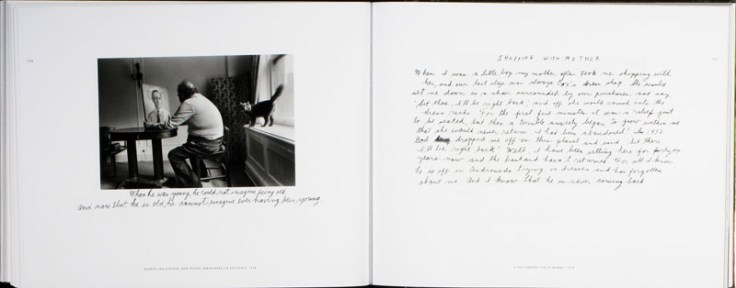 When he was young he could not imagine being old
and now that he is old, he cannot imagine ever having been young
SHOPPING WITH MOTHER
When I was a little boy my mother often took me shopping with
her, and our last stop was always a dress shop. She would
set me down in a chair surrounded by our purchases and say
"sit there I'll be right back" and off she would vanish into the
dress racks. For the first few minutes it was a relief just
to be seated, but then a terrible anxiety began to grow within me
that she would never return. I had been abandoned! In 1932
God dropped me off on this planet and said, "sit there
I'll be right back." Well, I have been sitting here for
years now and the bastard hasn't returned. For all I know
he is off in Andromeda trying on dresses and has forgotten
about me. And I know that he is never coming back